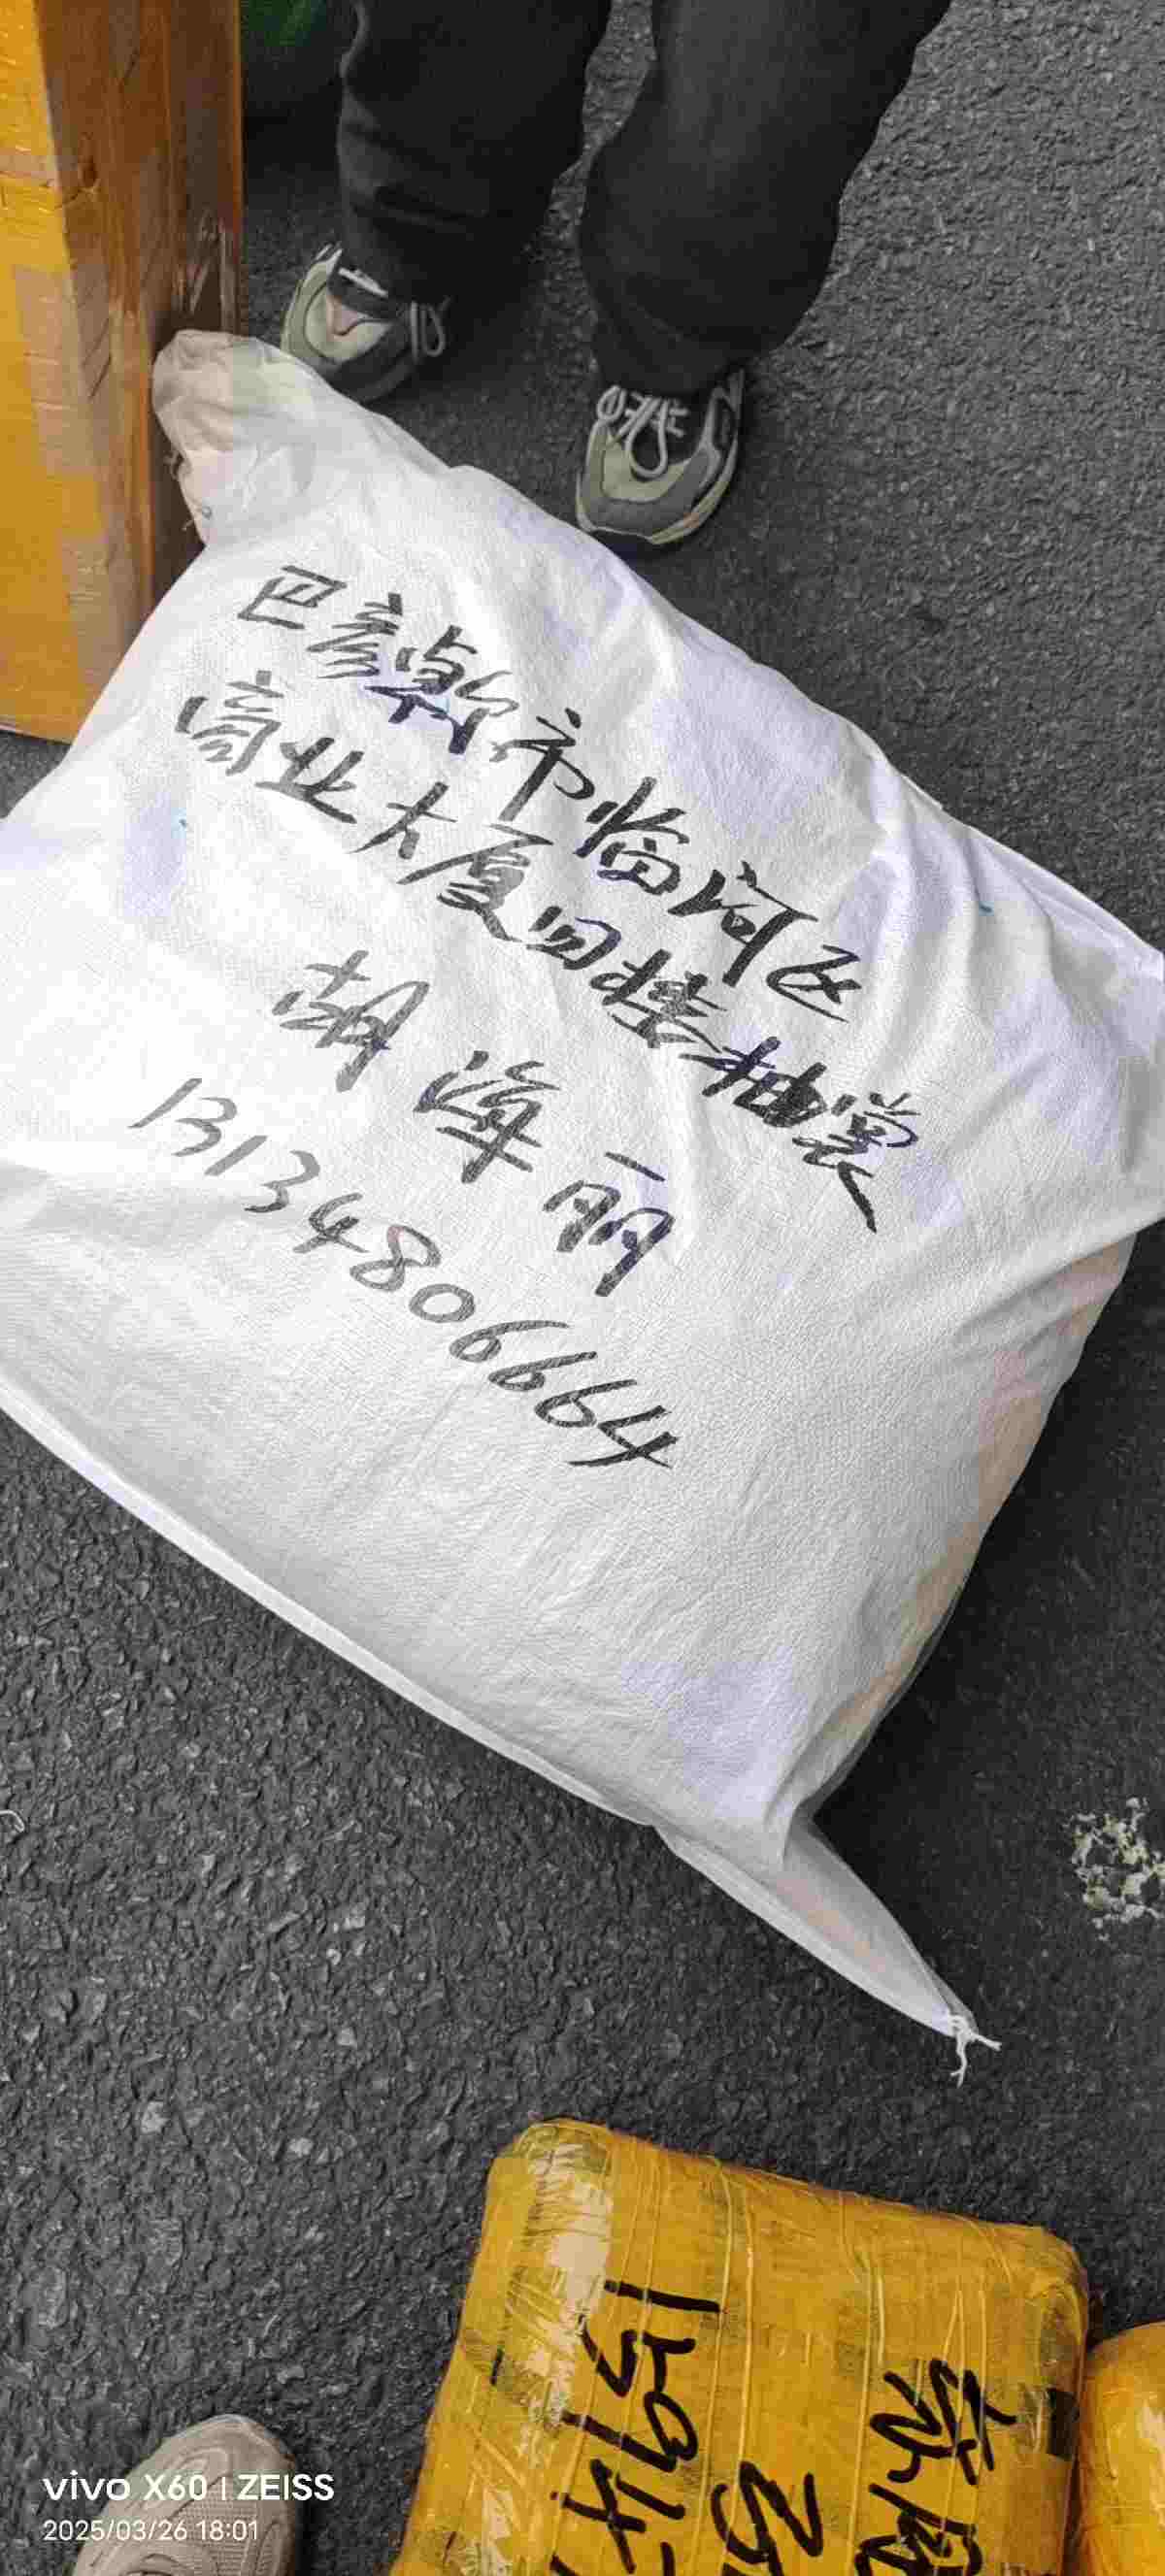 巴彦淖尔市临河区
商业大厦四楼抽裳
胡海丽
13134806664
1594
vivo X60 | ZEISS
2025/03/26 18:01